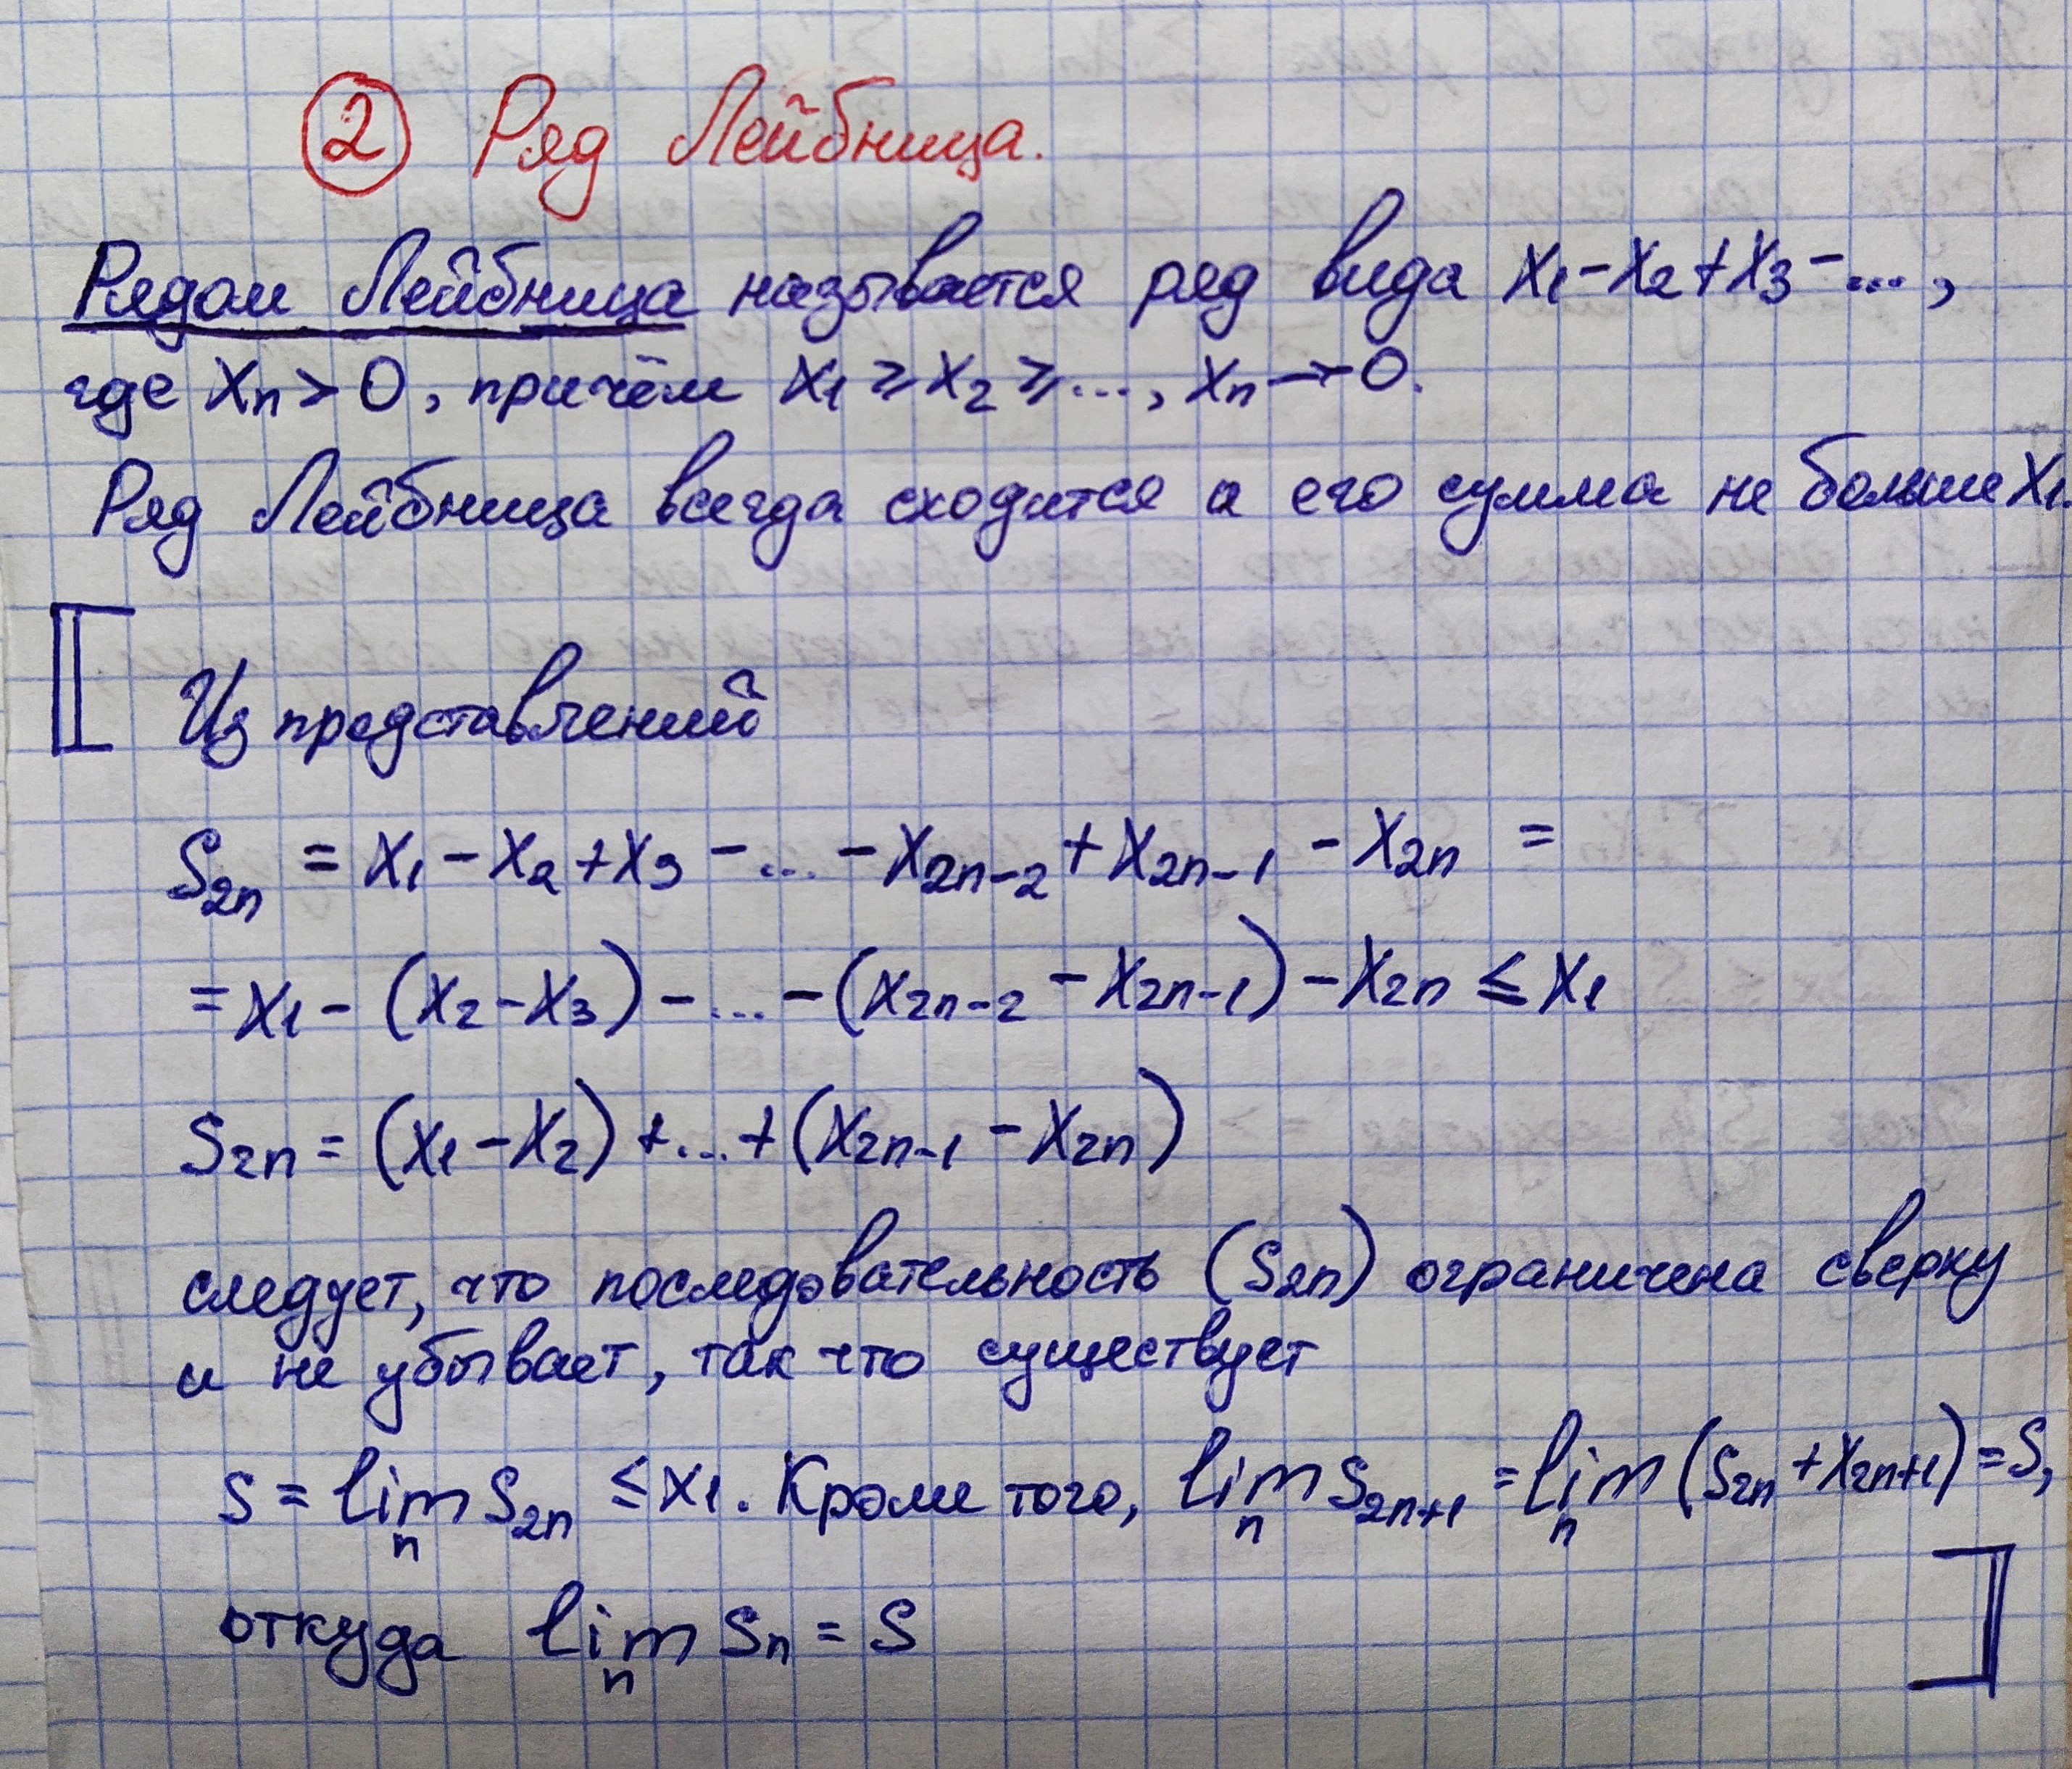 ② Ряд Лейбница.
Рядом Лейбница называется ряд вида x₁ - x₂ + x₃ - ... ,
где xₙ > 0, причём x₁ ⩾ x₂ ⩾ ... , xₙ → 0.
Ряд Лейбница всегда сходится а его сумма не больше x₁.
Из представлений
S₂ₙ = x₁ - x₂ + x₃ - ... - x₂ₙ₋₂ + x₂ₙ₋₁ - x₂ₙ =
= x₁ - (x₂ - x₃) - ... - (x₂ₙ₋₂ - x₂ₙ₋₁) - x₂ₙ ⩽ x₁
S₂ₙ = (x₁ - x₂) + ... + (x₂ₙ₋₁ - x₂ₙ)
следует, что последовательность (S₂ₙ) ограничена сверху
и не убывает, так что существует
S = lim S₂ₙ ⩽ x₁. Кроме того, lim S₂ₙ₊₁ = lim (S₂ₙ + x₂ₙ₊₁) = S,
n n n
откуда lim Sₙ = S
n